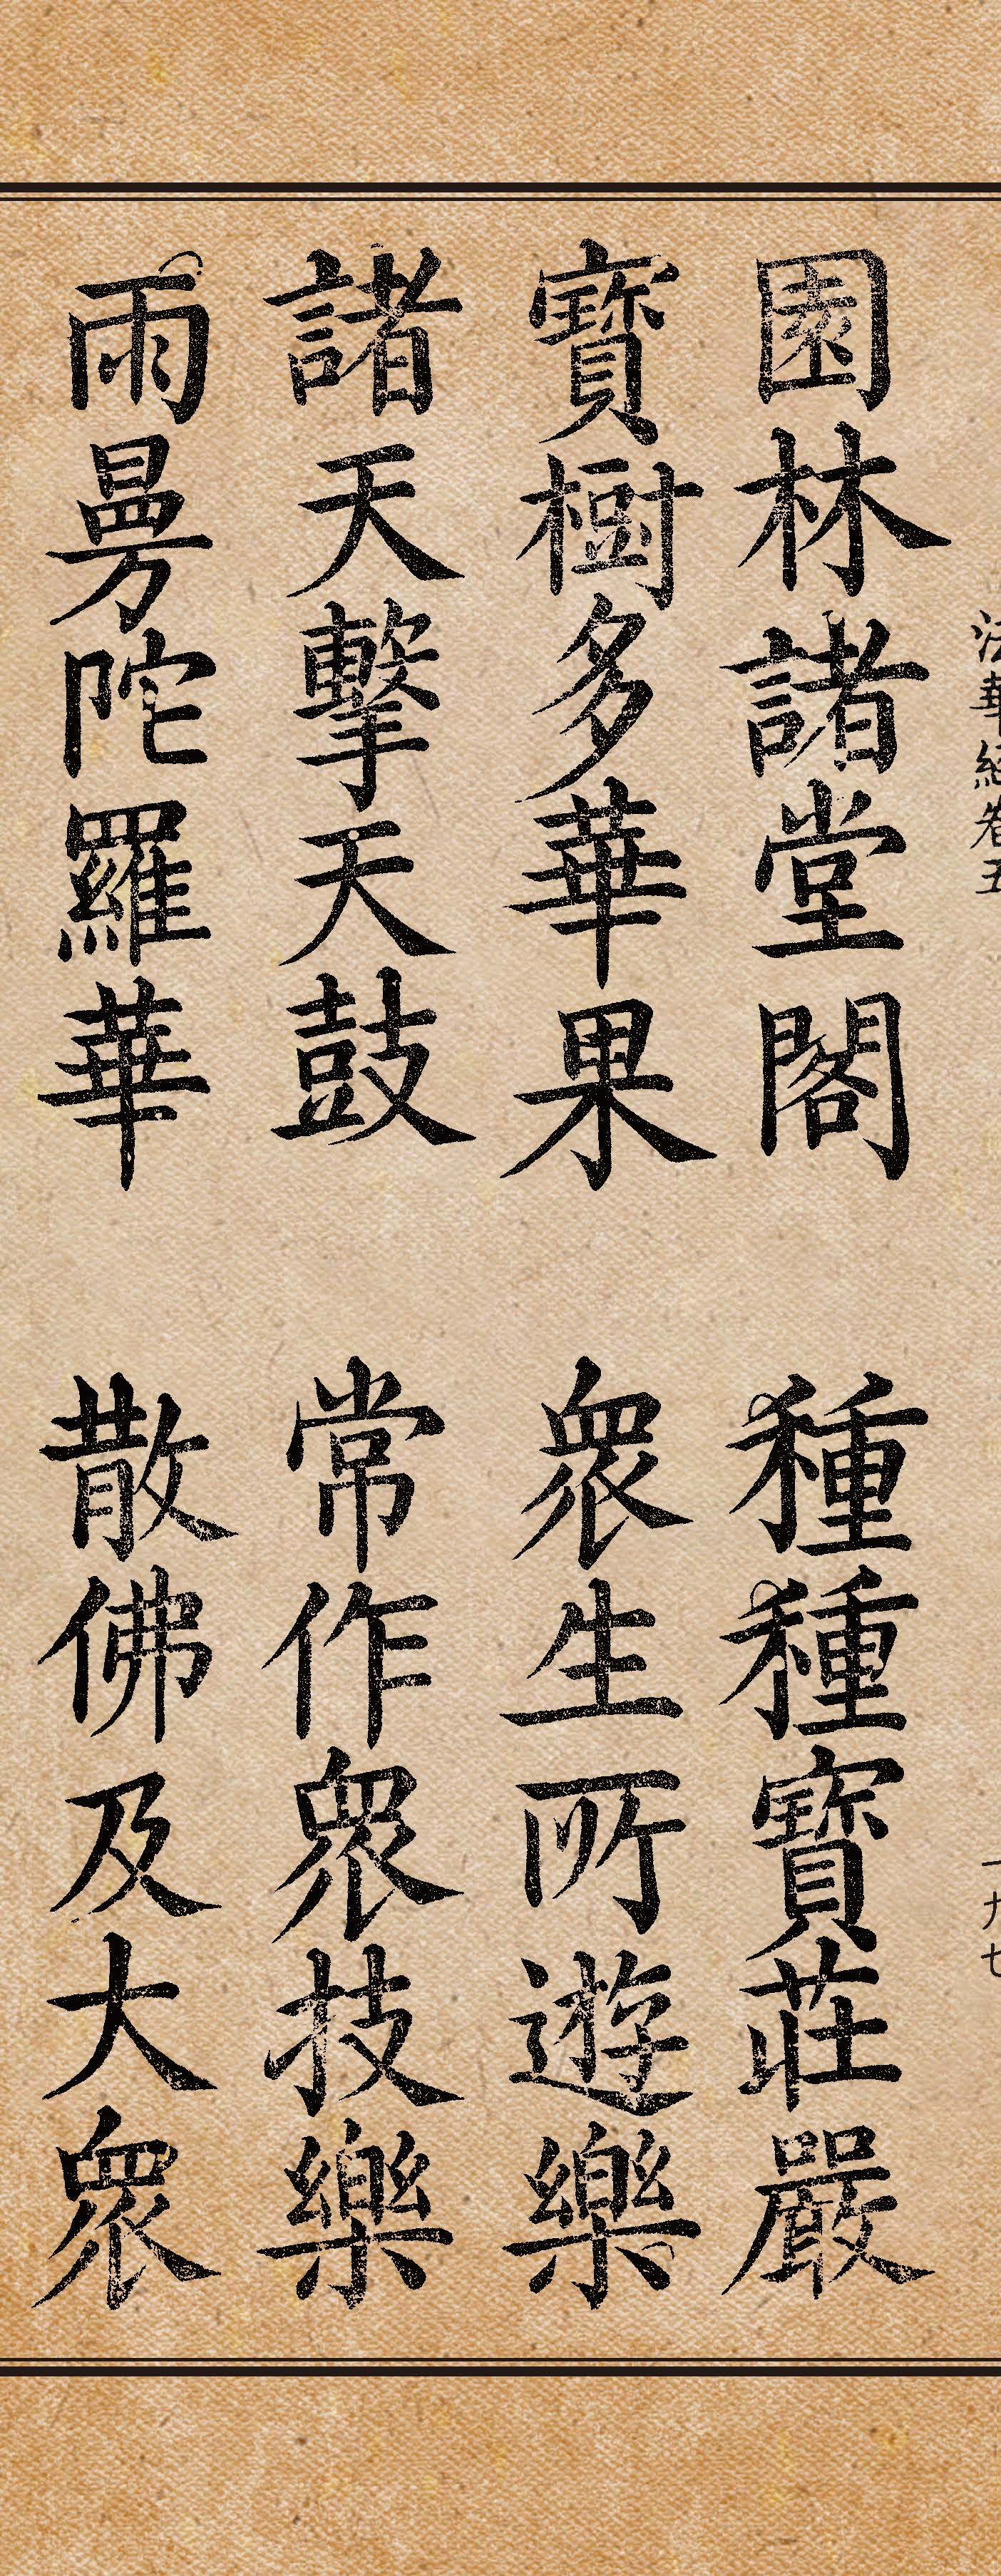 法華經卷五 一九七
園林諸堂閣 種種寶莊嚴
寶樹多華果 衆生所遊樂
諸天擊天鼓 常作衆技樂
雨曼陀羅華 散佛及大衆